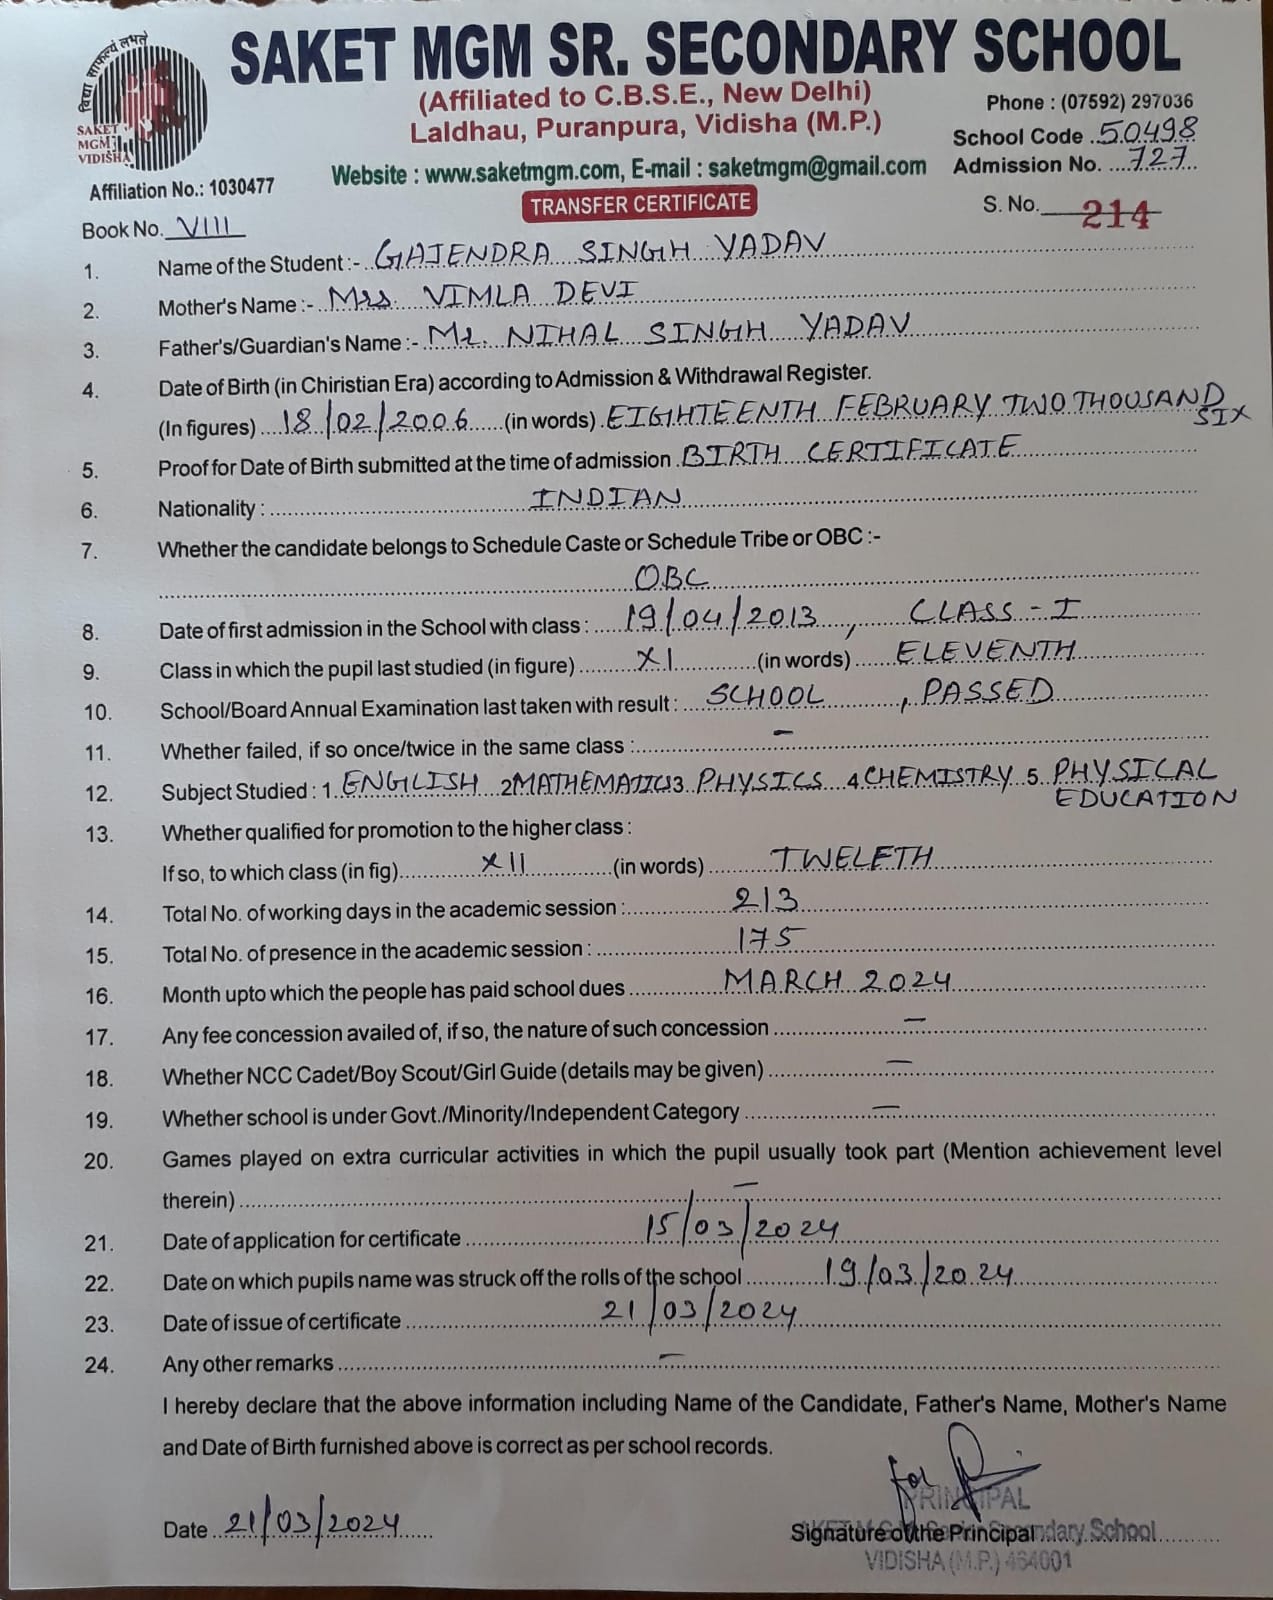 विद्या साफल्यं लभते
SAKET
MGM
VIDISHA
SAKET MGM SR. SECONDARY SCHOOL
(Affiliated to C.B.S.E., New Delhi)
Laldhau, Puranpura, Vidisha (M.P.)
Phone : (07592) 297036
School Code ..50498
Website : www.saketmgm.com, E-mail : saketmgm@gmail.com
Admission No. ....727..
Affiliation No.: 1030477
TRANSFER CERTIFICATE
S. No. 214
Book No. VIII
1. Name of the Student :- GAJENDRA SINGH YADAV
2. Mother's Name :- Mrs. VIMLA DEVI
3. Father's/Guardian's Name :- Mr. NIHAL SINGH YADAV
4. Date of Birth (in Chiristian Era) according to Admission & Withdrawal Register.
(In figures) 18/02/2006 (in words) EIGHTEENTH FEBRUARY TWO THOUSAND
SIX
5. Proof for Date of Birth submitted at the time of admission BIRTH CERTIFICATE
6. Nationality : INDIAN
7. Whether the candidate belongs to Schedule Caste or Schedule Tribe or OBC :-
OBC
8. Date of first admission in the School with class : 19/04/2013, CLASS - I
9. Class in which the pupil last studied (in figure) XI (in words) ELEVENTH
10. School/Board Annual Examination last taken with result : SCHOOL , PASSED
11. Whether failed, if so once/twice in the same class : -
12. Subject Studied : 1. ENGLISH 2 MATHEMATICS 3 PHYSICS 4 CHEMISTRY 5. PHYSICAL
EDUCATION
13. Whether qualified for promotion to the higher class :
If so, to which class (in fig) XII (in words) TWELETH
14. Total No. of working days in the academic session : 213
15. Total No. of presence in the academic session : 175
16. Month upto which the people has paid school dues MARCH 2024
17. Any fee concession availed of, if so, the nature of such concession -
18. Whether NCC Cadet/Boy Scout/Girl Guide (details may be given) -
19. Whether school is under Govt./Minority/Independent Category -
20. Games played on extra curricular activities in which the pupil usually took part (Mention achievement level
therein) -
21. Date of application for certificate 15/03/2024
22. Date on which pupils name was struck off the rolls of the school 19/03/2024
23. Date of issue of certificate 21/03/2024
24. Any other remarks -
I hereby declare that the above information including Name of the Candidate, Father's Name, Mother's Name
and Date of Birth furnished above is correct as per school records.
for
PRINCIPAL
Date 21/03/2024
Signature of the Principal
Secondary School
VIDISHA (M.P.) 464001